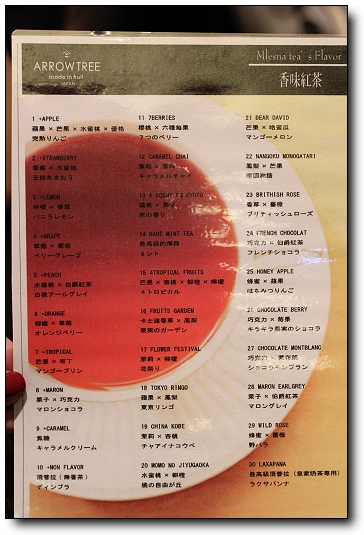 ARROWTREE
made in fruit
JAPAN
Mlesna tea's Flavor
香味紅茶
1 +APPLE
蘋果 × 芒果 × 水蜜桃 × 優格
完熟りんご
2 +STRAWBERRY
草莓 × 水蜜桃
王様あまおう
3 +LEMON
檸檬 × 香草
バニラレモン
4 +GRAPE
ベリーグレープ
5 +PEACH
水蜜桃 × 伯爵紅茶
白桃アールグレイ
6 +ORANGE
柳橙 × 草莓
オレンジベリー
7 +TROPICAL
芒果 × 布丁
マンゴープリン
8 +MARON
栗子 × 巧克力
マロンショコラ
9 +CARAMEL
焦糖
キャラメルクリーム
10 +NON FLAVOR
頂普拉 (無香茶)
ディンブラ
11 7BERRIES
櫻桃 × 六種莓果
7つのベリー
12 CARAMEL CHAI
キャラメルチャイ
13 A SCENT OF KYOTO
京の香り
14 RARE MINT TEA
最高級的薄荷
ミント
15 4TROPICAL FRUITS
芒果 × 杏桃 × 柳橙 × 檸檬
4トロピカル
16 FRUITS GARDEN
卡士達香草 × 鳳梨
果実のガーデン
17 FLOWER FESTIVAL
茉莉 × 檸檬
花祭り
18 TOKYO RINGO
蘋果 × 鳳梨
東京リンゴ
19 CHINA KOBE
茉莉 × 杏桃
チャアイナコウベ
20 MOMO NO JIYUGAOKA
水蜜桃 × 柳橙
桃の自由が丘
21 DEAR DAVID
芒果 × 哈蜜瓜
マンゴーメロン
22 NANGOKU MONOGATARI
鳳梨 × 芒果
南国物語
23 BRITHISH ROSE
香草 × 薔薇
ブリティッシュローズ
24 FRENCH CHOCOLAT
巧克力 × 伯爵紅茶
フレンチショコラ
25 HONEY APPLE
蜂蜜 × 蘋果
はちみつりんご
26 CHOCOLATE BERRY
巧克力 × 莓果
キラキラ果実のショコラ
27 CHOCOLATE MONTBLANC
ショコラモンブラン
28 MARON EARLGREY
栗子 × 伯爵紅茶
マロングレイ
29 WILD ROSE
蜂蜜 × 薔薇
野バラ
30 LAXAPANA
最高級頂普拉 (皇家奶茶專用)
ラクサパンナ